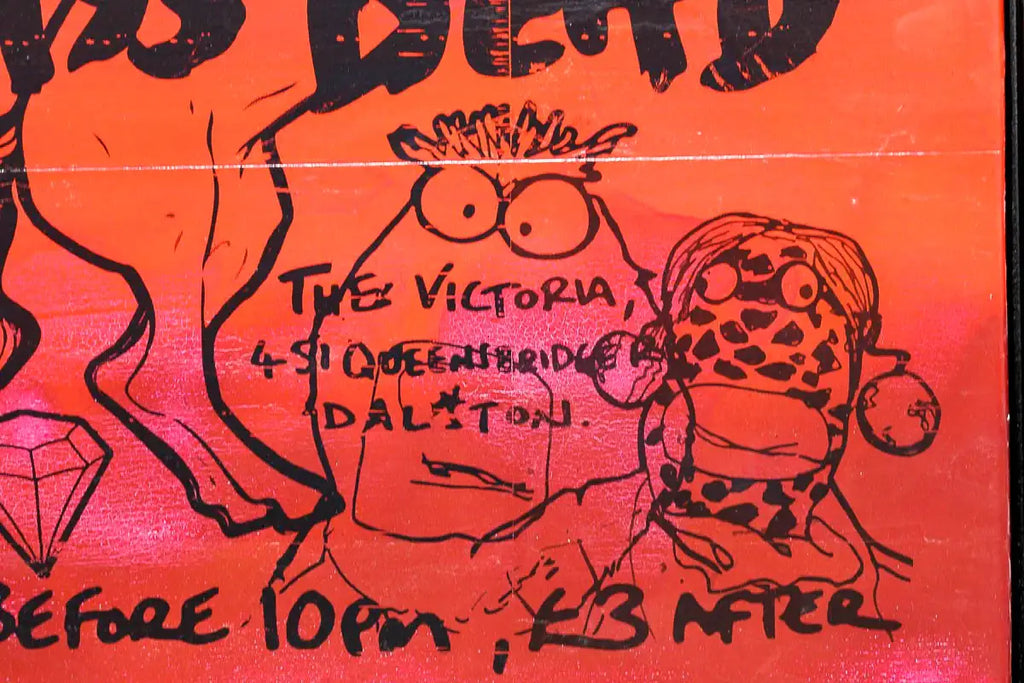 DEAD
THE VICTORIA,
451 QUEENSBRIDGE R
DAL★TON.
BEFORE 10PM, £3 AFTER